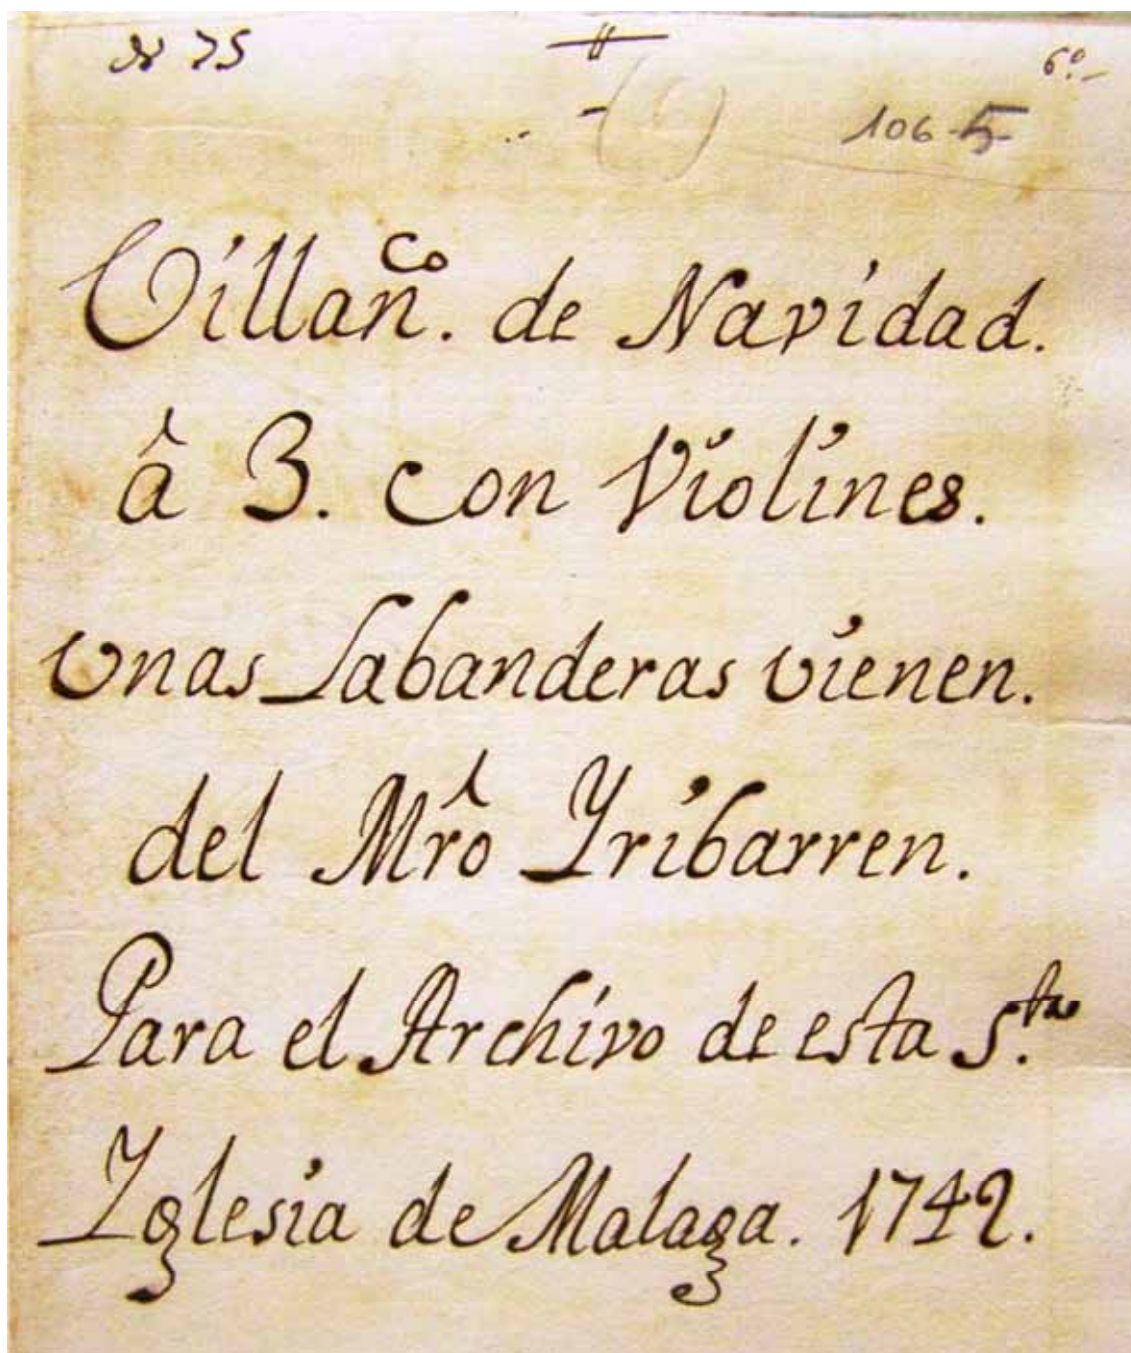 N 75 6º.
106-5
Villanco. de Navidad.
â 3. con Violines.
Unas Labanderas vienen.
del Mrô Yribarren.
Para el Archivo de esta S.ta
Yglesia de Malaga. 1742.